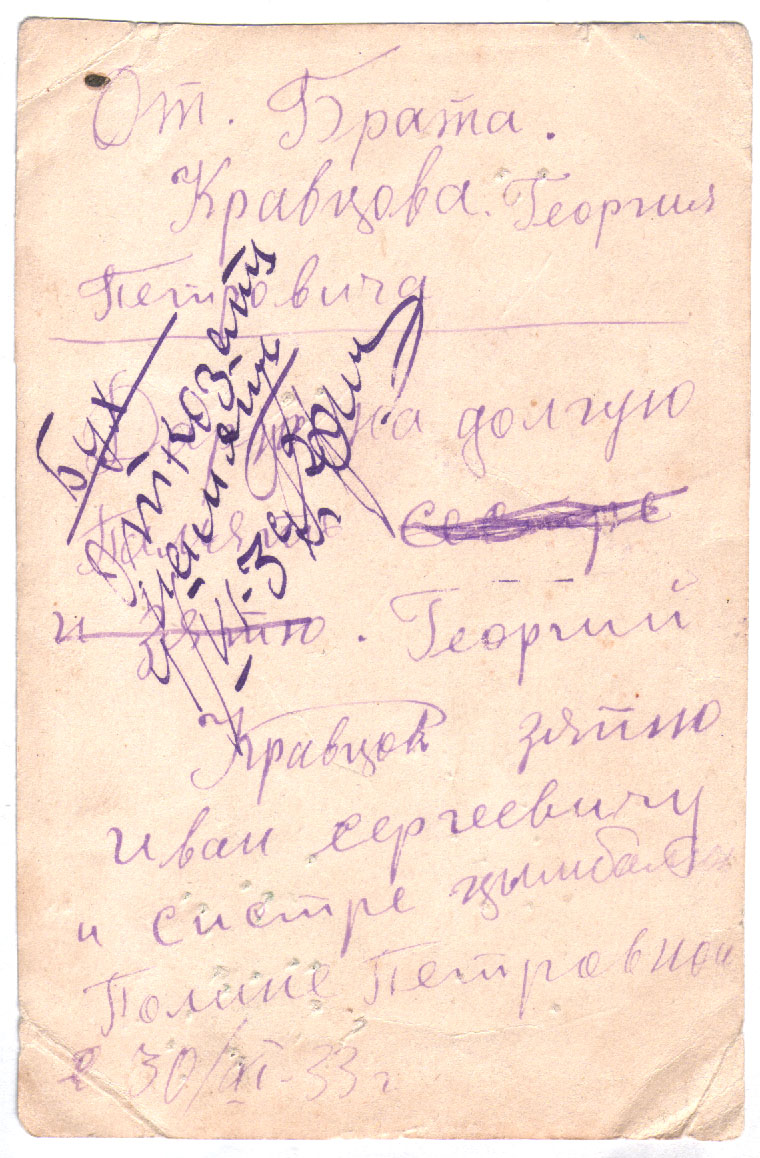 От. Брата.
Кравцова. Георгия
Петровича
на долгую
Память сестре
и зятю. Георгий
Кравцов зятю
Иван сергеевичу
и систре
Полине Петровной
30/XI-33 г
Бух